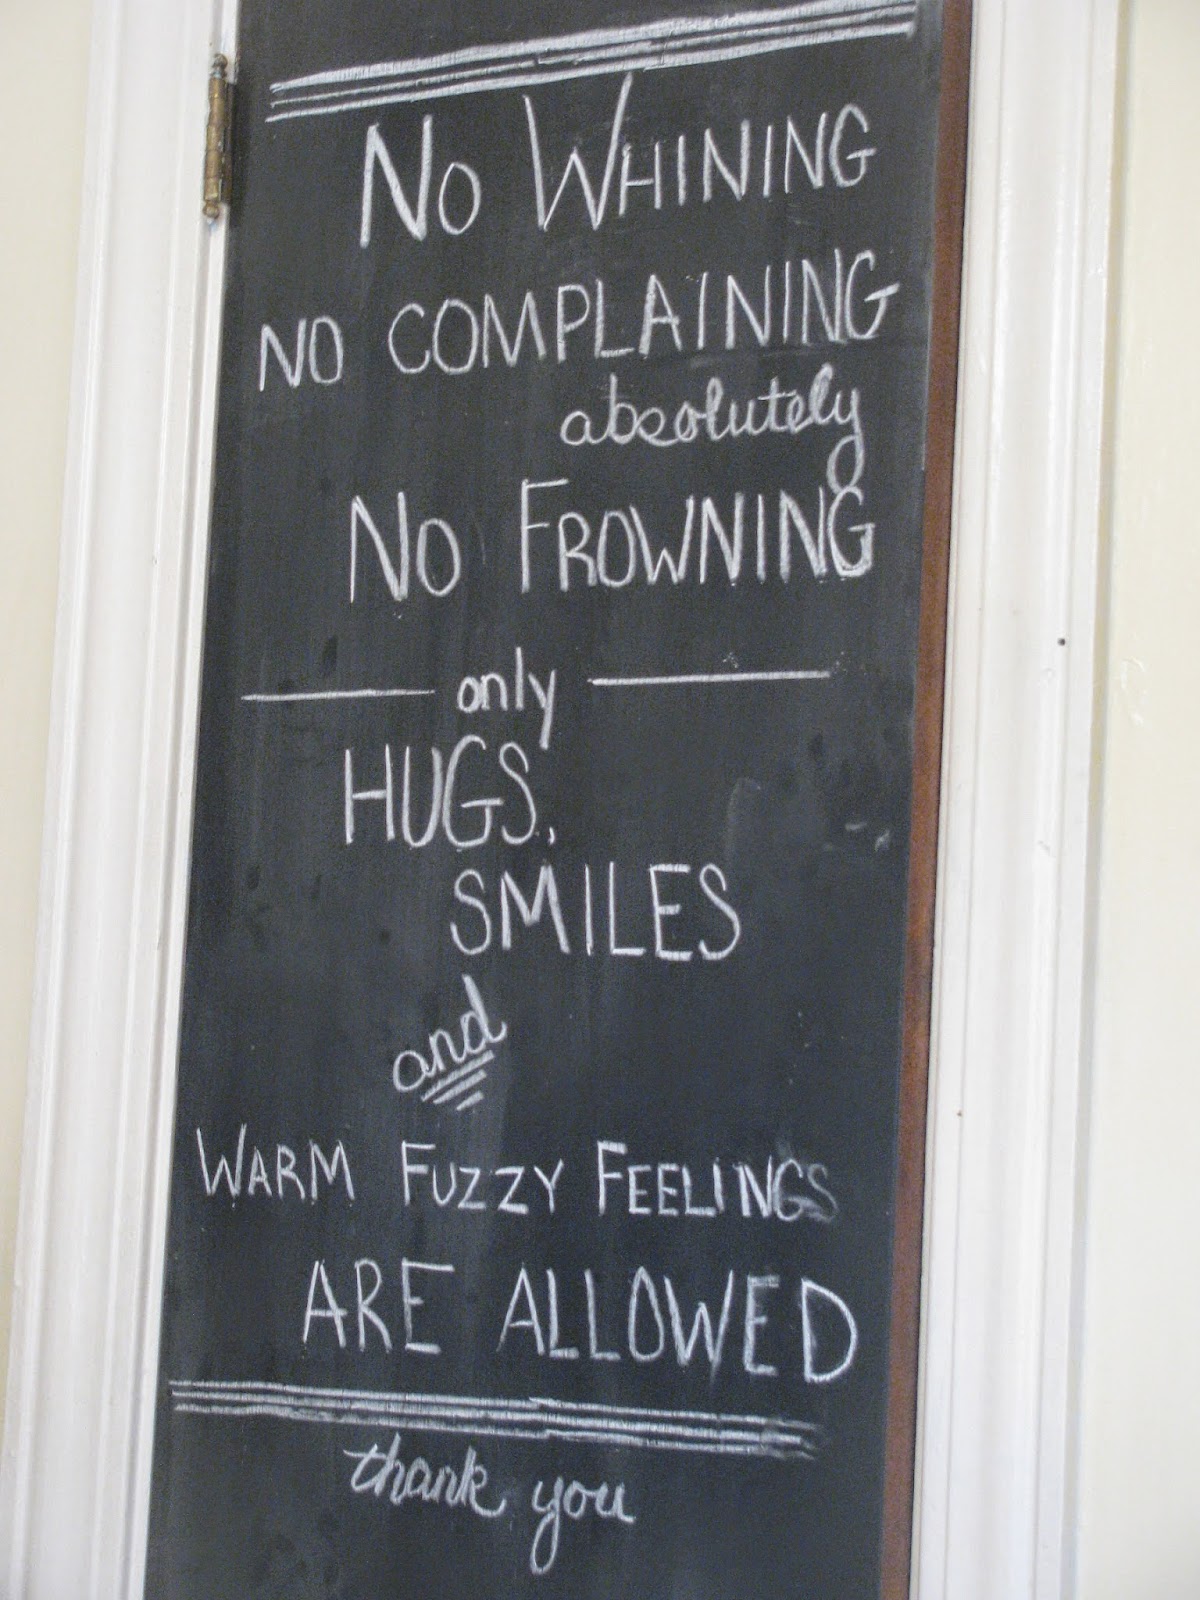 No WHINING
NO COMPLAINING
absolutely
No FROWNING
only
HUGS,
SMILES
and
WARM FUZZY FEELINGS
ARE ALLOWED
thank you